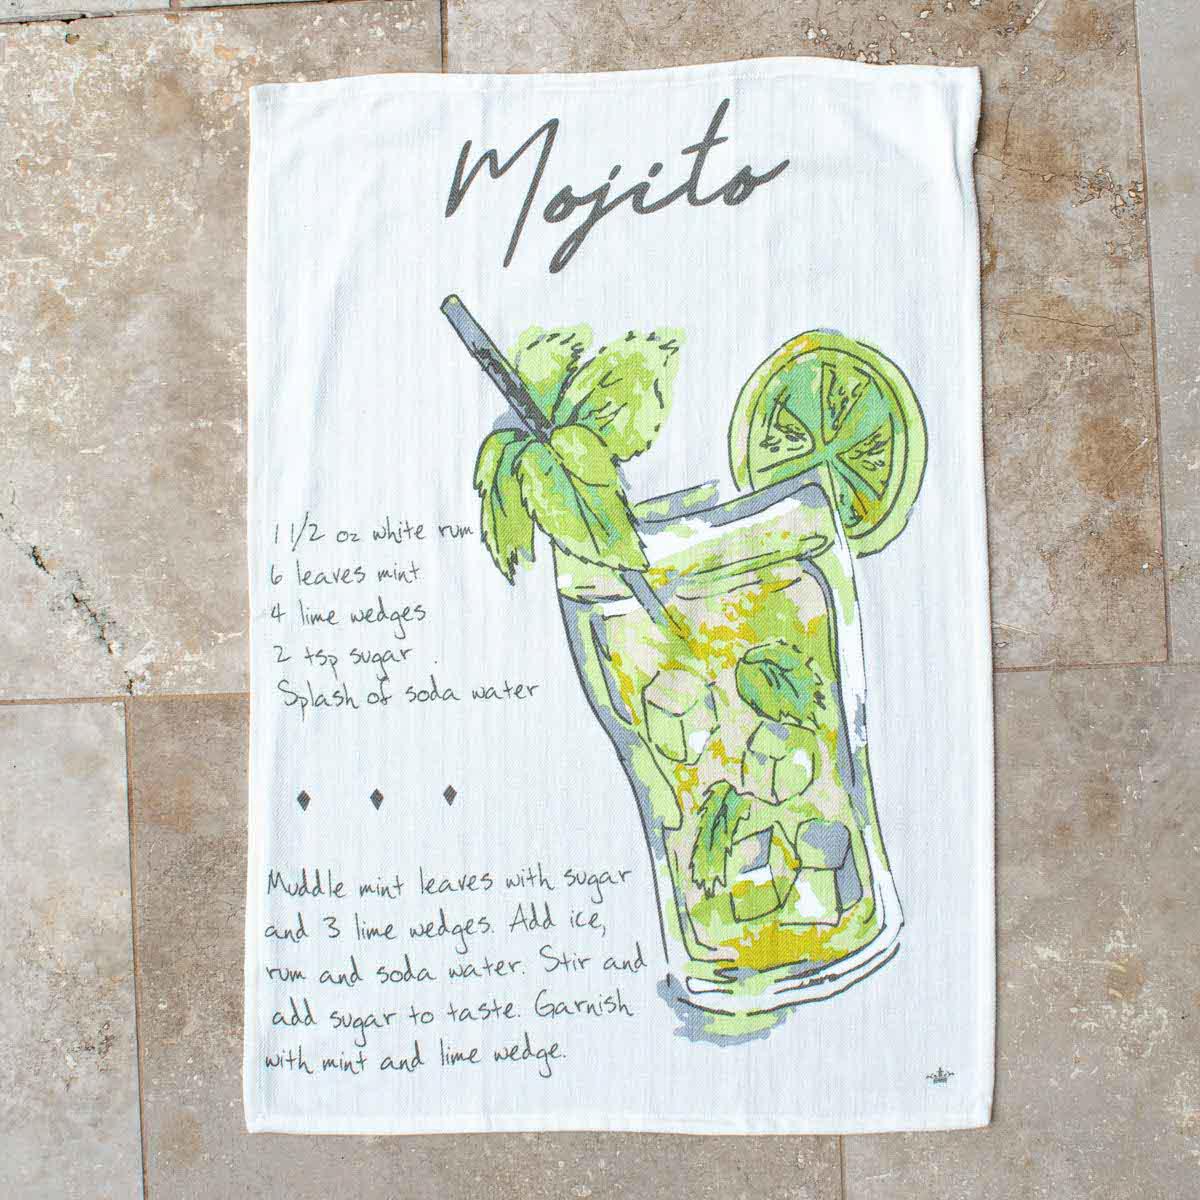 Mojito
1 1/2 oz white rum
6 leaves mint
4 lime wedges
2 tsp sugar
Splash of soda water
Muddle mint leaves with sugar
and 3 lime wedges. Add ice,
rum and soda water. Stir and
add sugar to taste. Garnish
with mint and lime wedge.